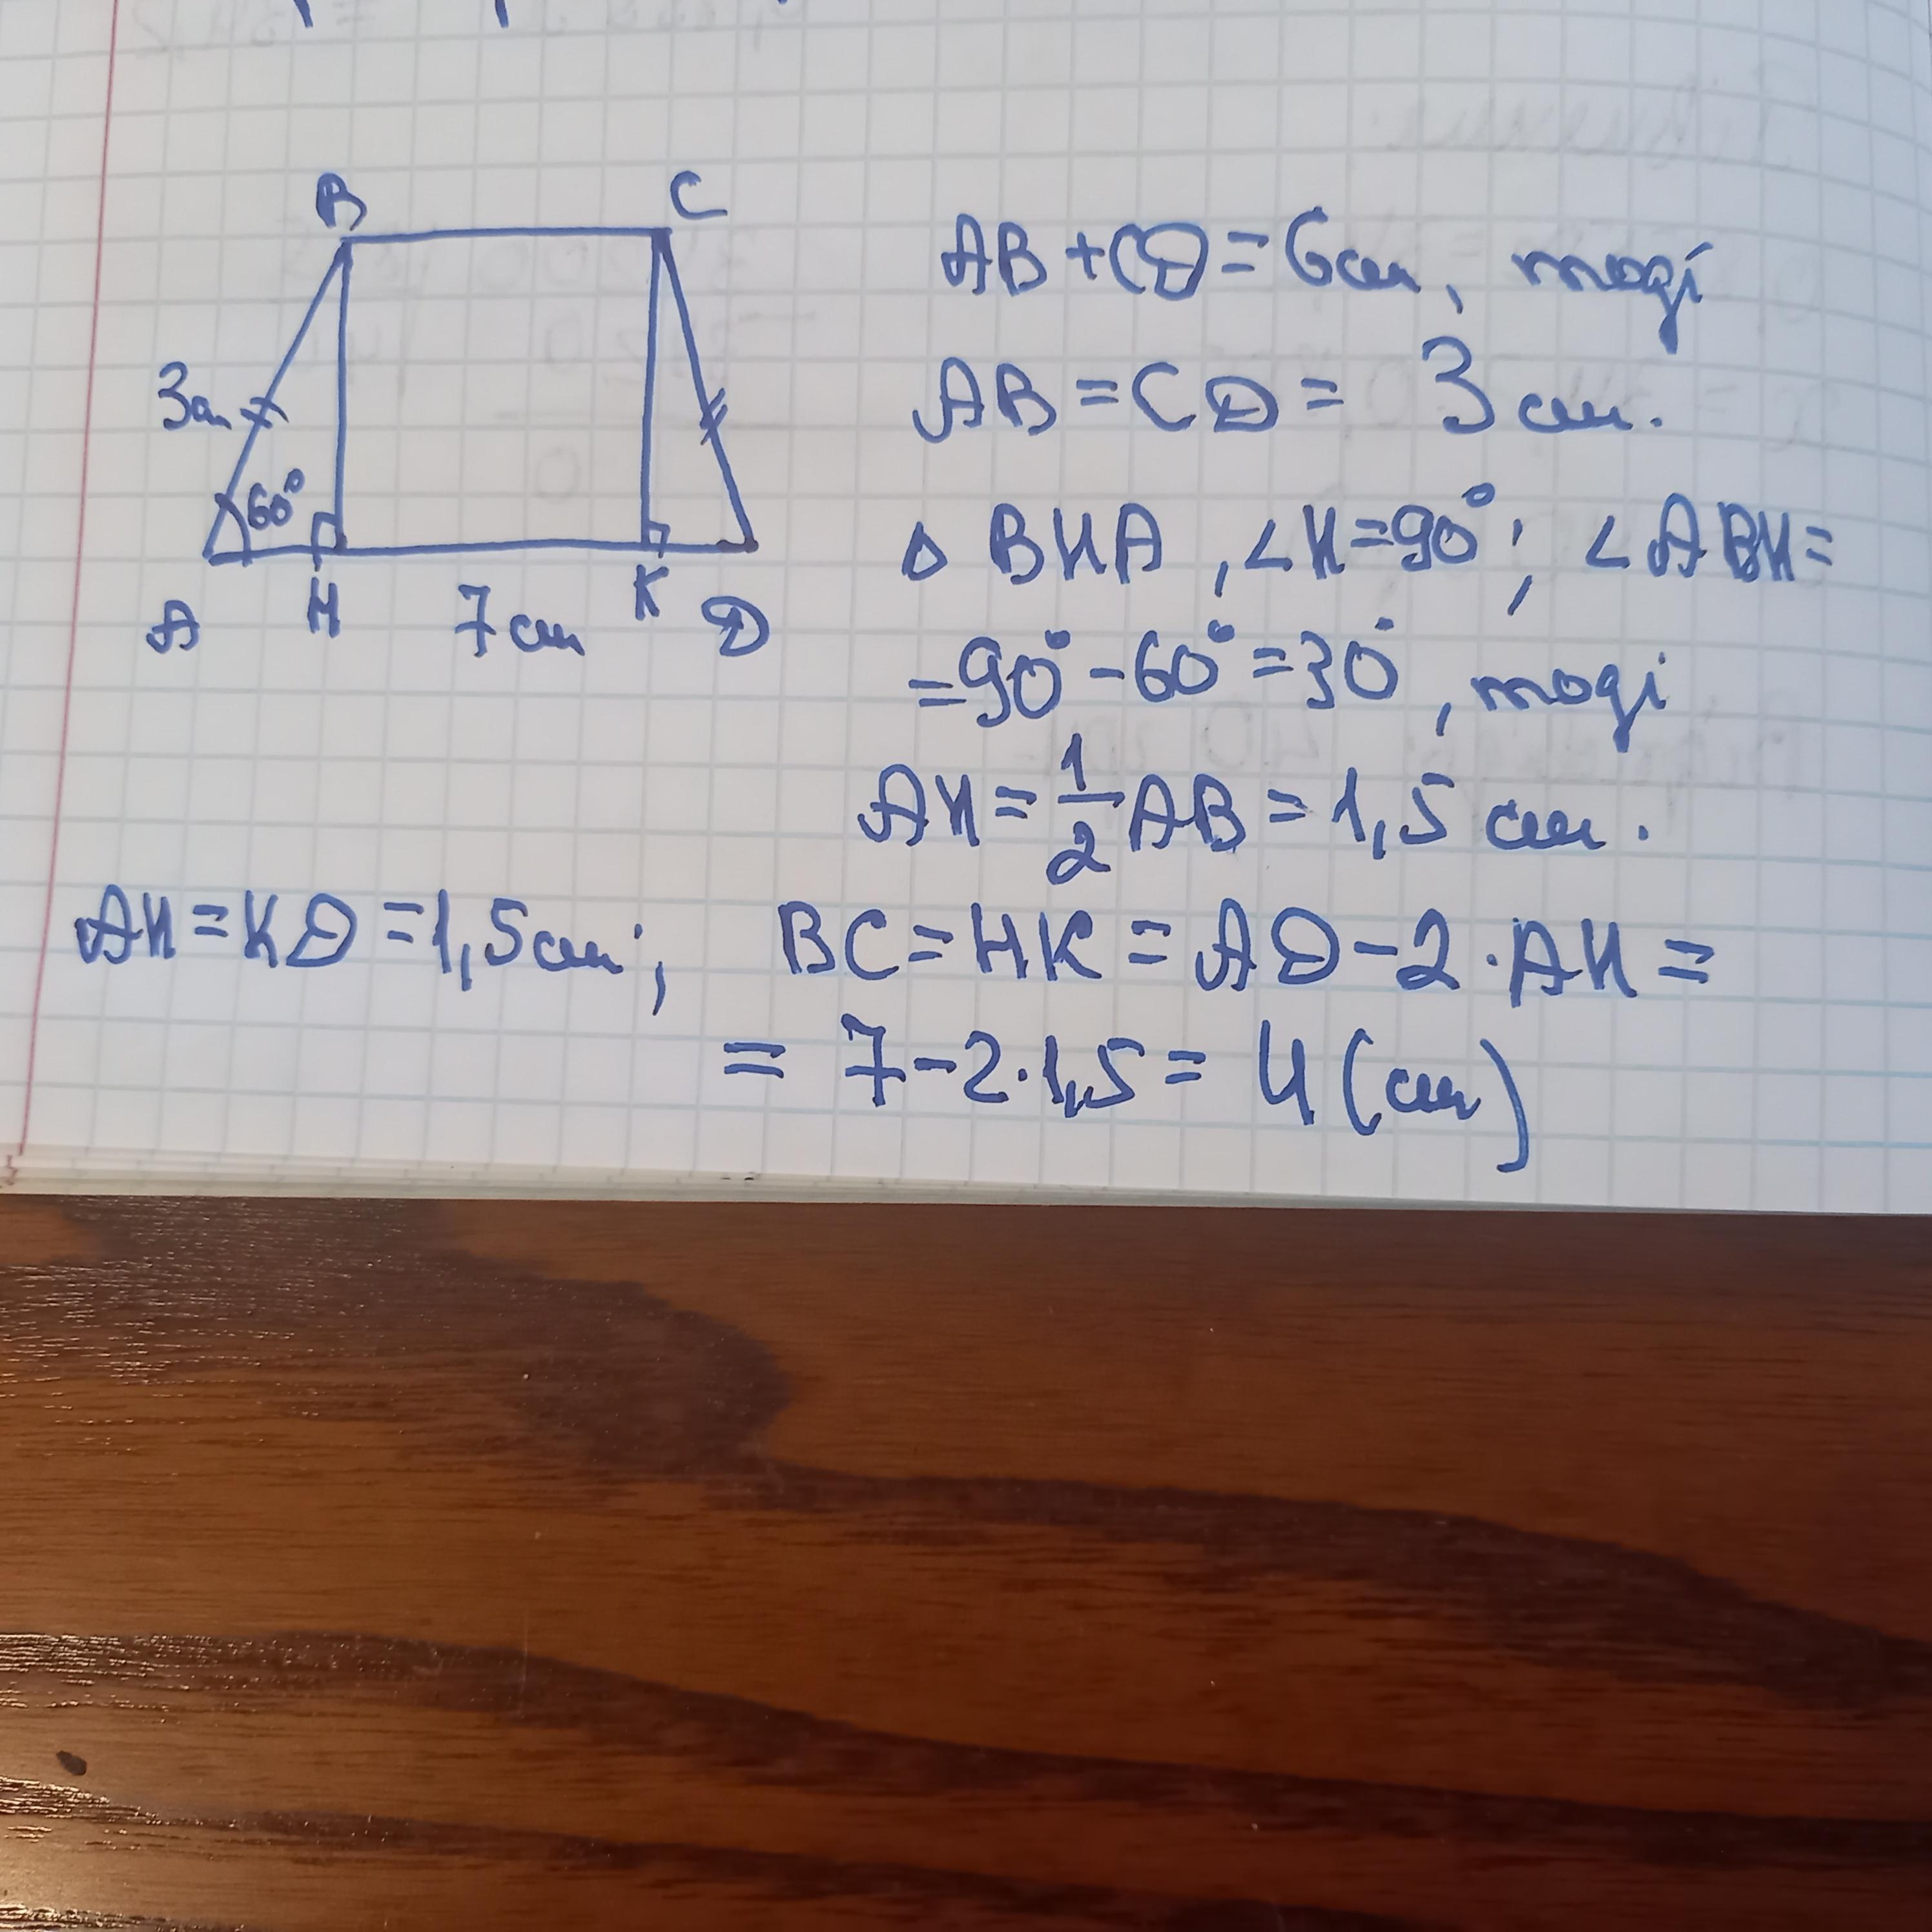 B C
AB + CD = 6 см, тоді
3 см
AB = CD = 3 см.
60°
△ BHA, ∠H = 90°; ∠ABH =
A H 7 см K D
= 90° - 60° = 30°, тоді
AH = 1/2 AB = 1,5 см.
AH = KD = 1,5 см; BC = HK = AD - 2 · AH =
= 7 - 2 · 1,5 = 4 (см)